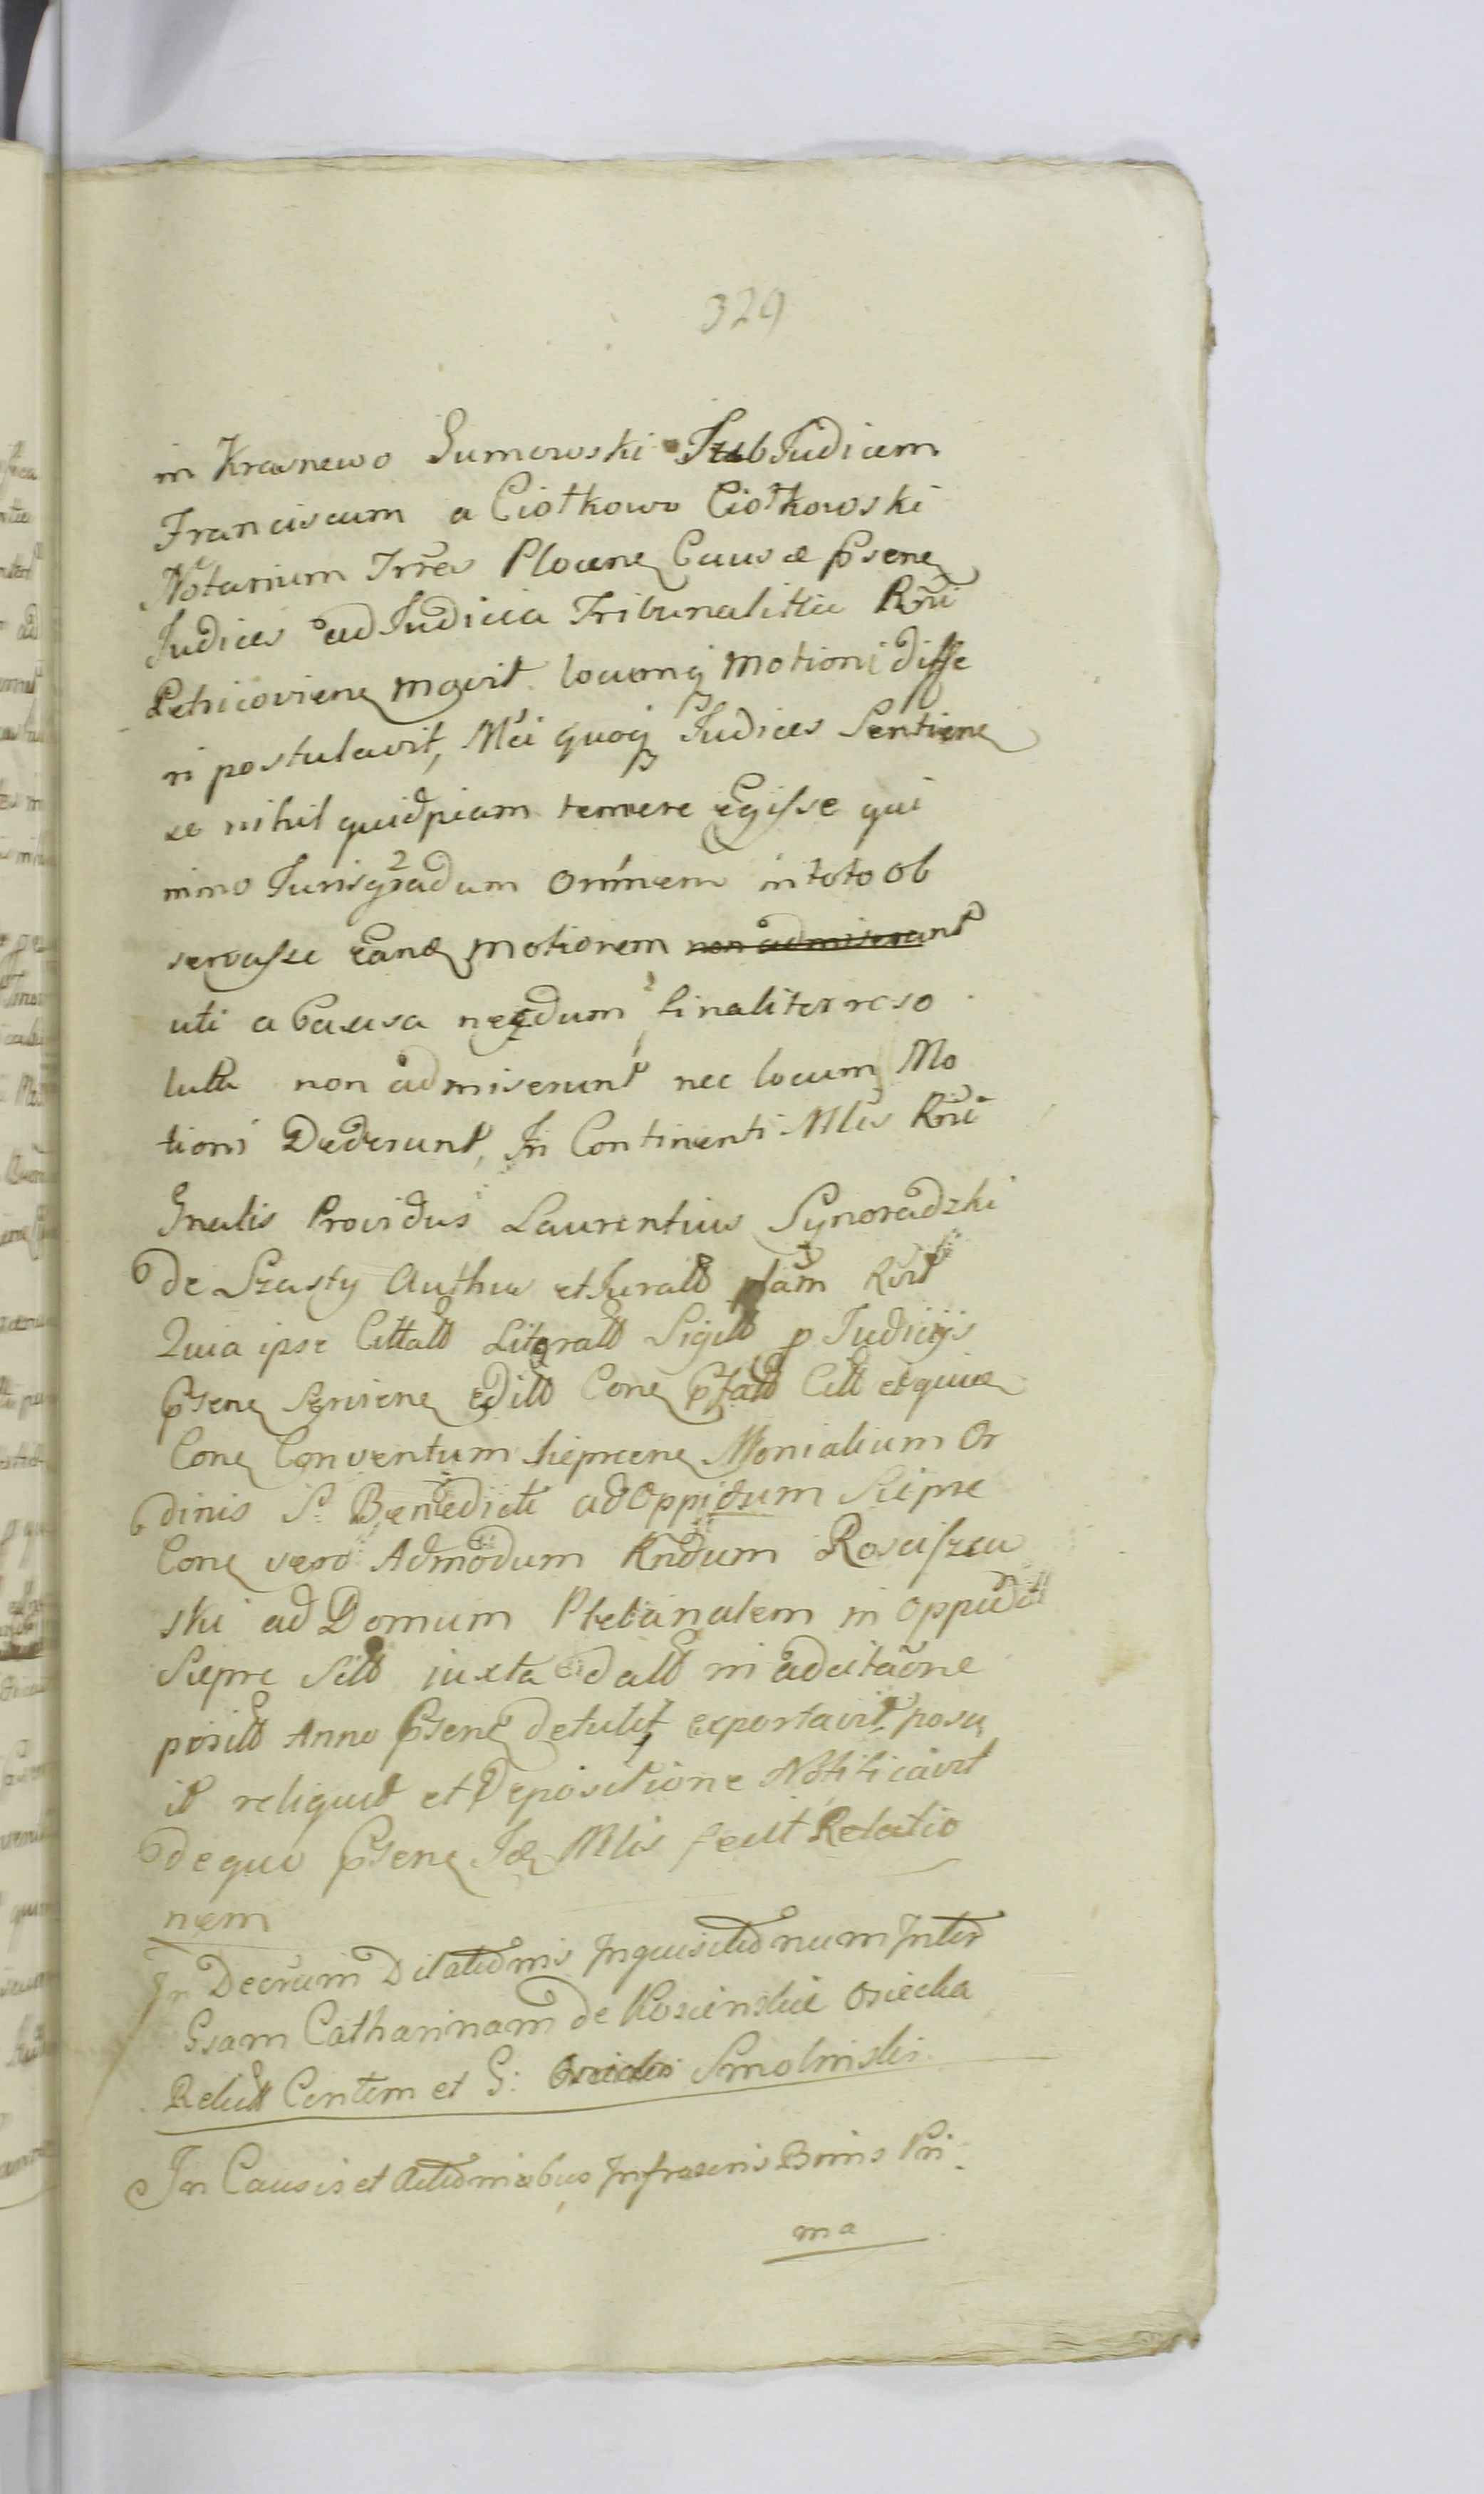 329
in Krasnewo Sumowski SubJudicem
Franciscum a Ciołkowo Ciołkowski
Notarium Trres Plocen Causæ psen
Judices ad Judicia Tribunalitia Rni
Petricovien movit locumq motioni diffe
ri postulavit, Mci quoq Judices Sentien
se nihil quidpiam temere Egisse qui
nimo Juris gradum omnem in toto ob
servasse Eand motionem non admiserunt
uti a Causa necdum finaliter reso
luta non admiserunt nec locum Mo
tioni Dederunt, In Continenti Mlis Rni
Gnalis Providus Laurentius Synoradzki
de Szasty Authus et Jurat
Quia ipse Cittatt Literatt Sigill p Judicijs
psen Servien Editt Con pfatt Citt et quidem
Con Conventum Sieprcen Monialium Or
dinis S. Benedicti ad Oppidum Sieprc
Con vero Admodum Rndum Rosciszew
ski ad Domum Plebanalem in Oppido
Sieprc Sitt juxta datt in adcitaone
positt Anno psen detulit, exportavit posu
it reliquit et Depositione Notificavit
de quo psen Id Mlis fecit Relatio
nem
In Decrum Dilationis Inquisitionum Inter
Gsam Catharinam de Koscienskie Osiecka
Relict Contem et G: Smolinski
In Causis et Actionibus Infrascris Binis Pri
ma